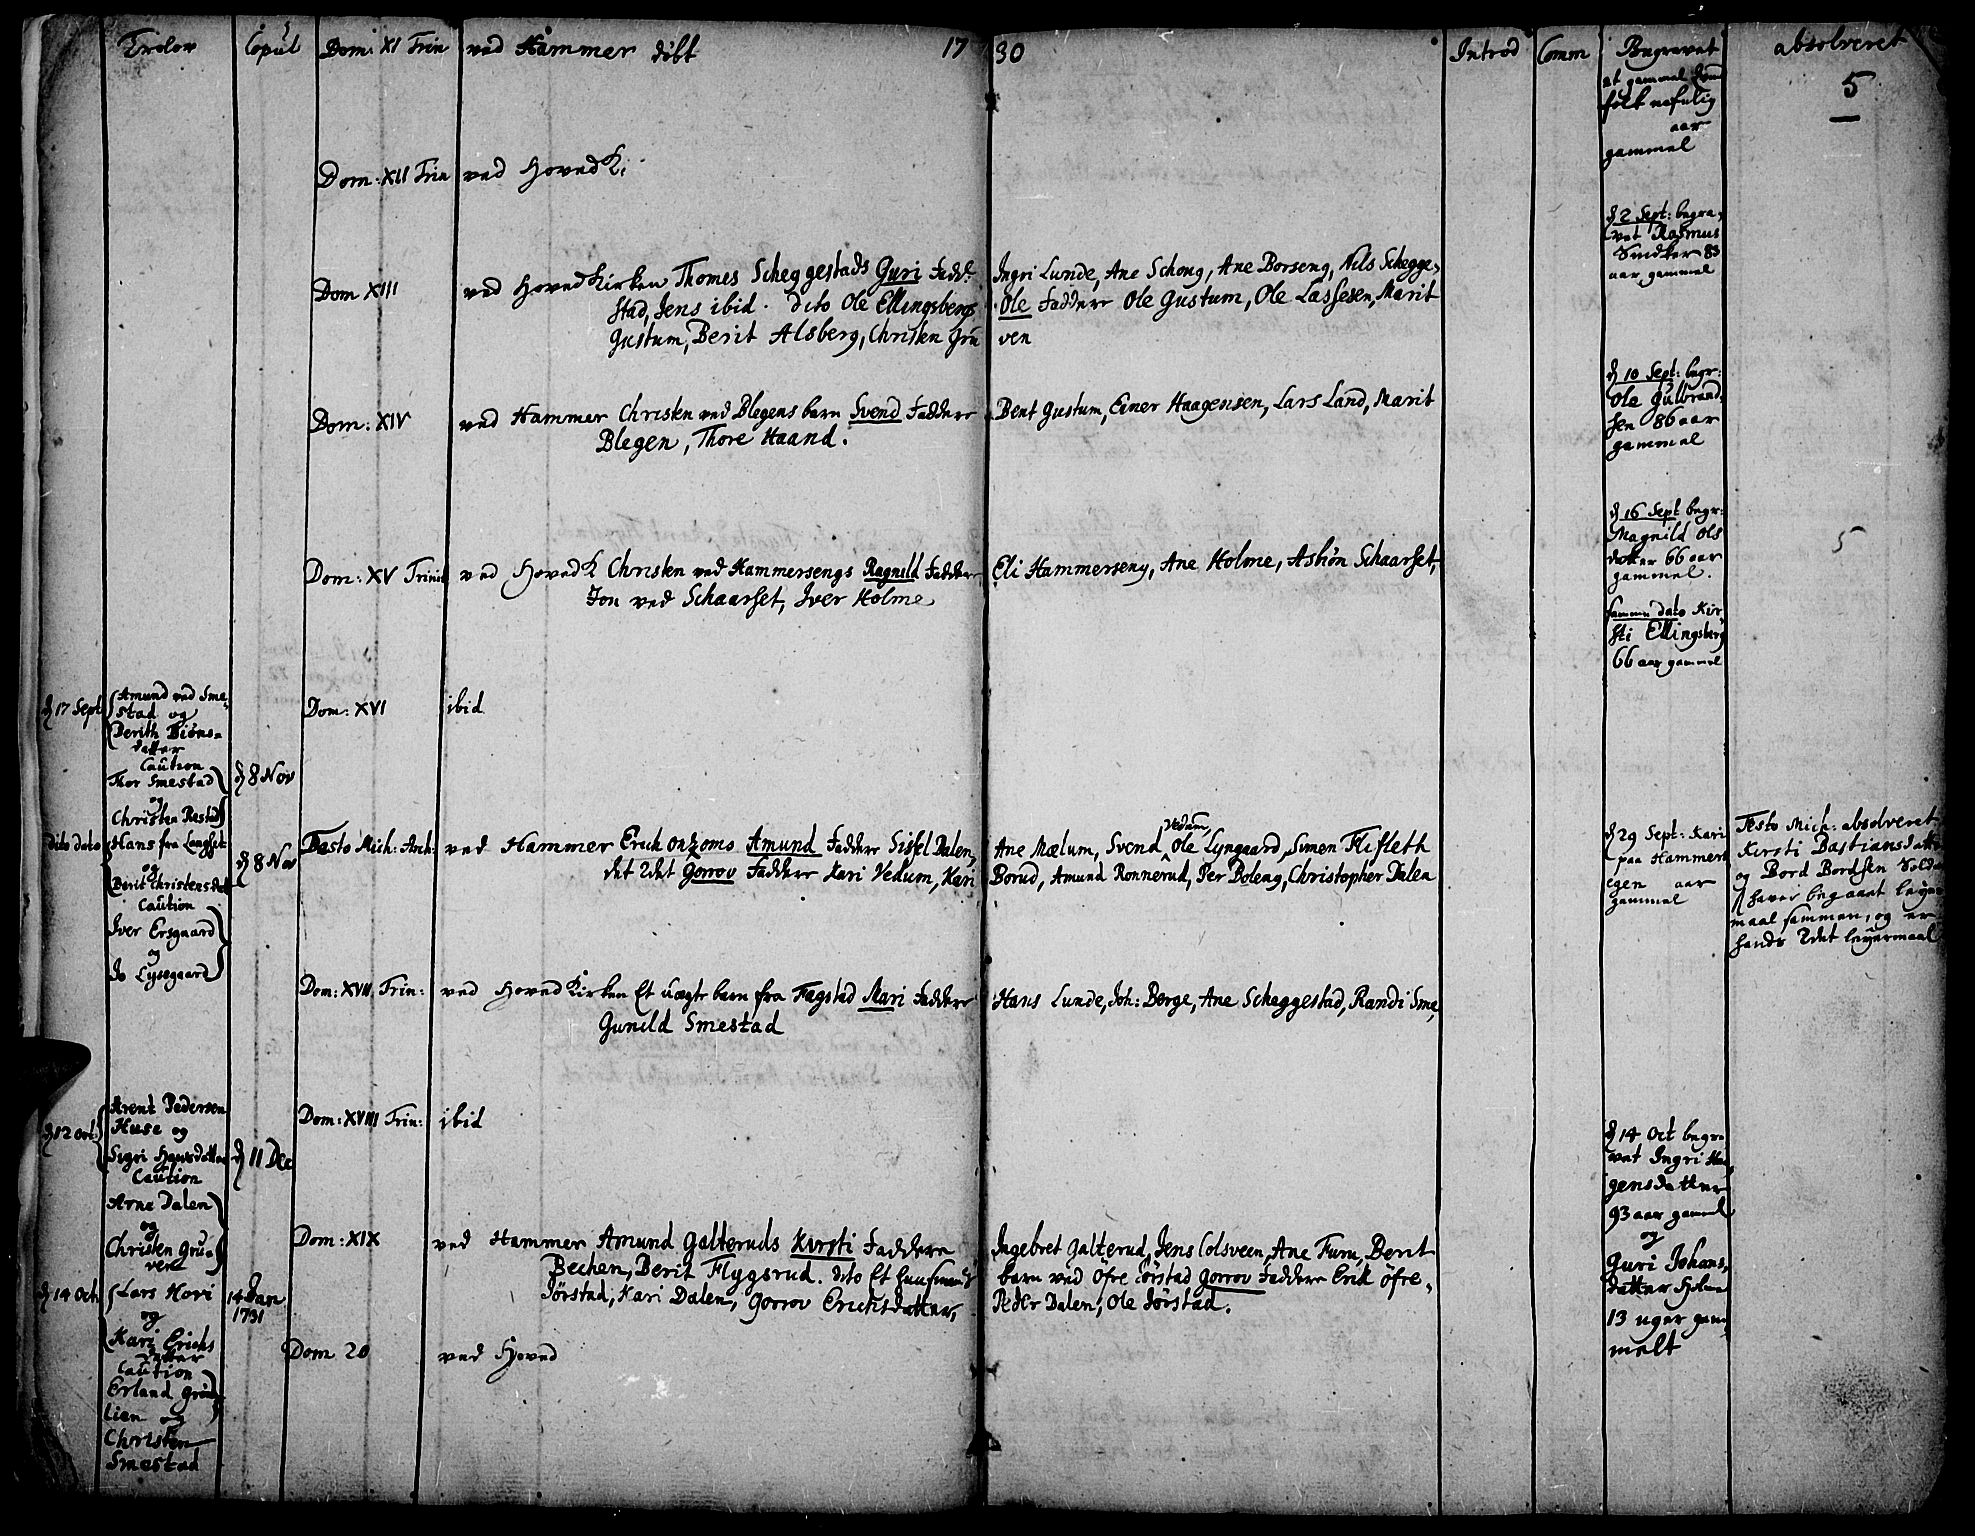 Trolov Copul Dom: XI Trin ved Hammer döbt 17 30 Introd Comm Begravet absolveret
5
gammel
folk
aar
gammel
Dom: XII Trin ved Hoved K:
d 2 Sept: begra,
vet Rasmus
83
aar gammel
Dom XIII ved Hoved Kirken Thomes Scheggestads Guri Fadd: Ingri Lunde, Ane Schong, Ane Borseng, Nils Schegge,
stad, Jens ibid. dito Ole Ellingsbergs Ole Faddere Ole Gustum, Ole Lassesen, Marit
Gustum, Berit Alsberg, Christen Gru ven
d 10 Sept: begr:
Ole Gulbrand,
sen 86 aar
gammel
Dom: XIV ved Hammer Christen ved Blegens barn Svend Faddere Bent Gustum, Einer Haagensen, Lars Land, Marit
Blegen, Thore Haand.
d 16 Sept begr:
Magnild Ols
datter 66 aar
gammel.
5
Dom: XV Trinit ved Hoved K Christen ved Hammersengs Ragnild Faddere Eli Hammerseng, Ane Holme, Asbiøn Schaarset,
Jon ved Schaarset, Iver Holme
samme dato Kir
sti Ellingsberg
66 aar gammel
d 17 Sept Amund ved Sme,
stad og
Berith Biöns=
datter
Caution
Thor Smestad
og
Christen Rastad
d 8 Nov
Dom: XVI ibid
dito dato Hans fra Langset
og
Berit Christensdat
Caution
Iver Ersgaard
og
Jo Lysegaard
d 8 Nov
Festo Mich: Arch: ved Hammer Erich Onzoms Amund Fadder Sissel Dalen, Ane Mælum, Svend Vedum, Ole Lyngaard, Simen Flifleth
det 2det Gorrov Fadder Kari Vedum, Kari Borud, Amund Ronnerud, Per Boleng, Christopher Dalen
d 29 Sept: Kari
paa Hammers
egen aar
gammel
Festo Mich: absolveret
Kirsti Bastiansdatt
og Bord Bordsen Sold
haver begaaet leyer
maal sammen, og er
hands 2det leyermaal
Dom: XVII Trin: ved Hoved Kirken Et uægte barn fra Fagstad Mari Faddere Hans Lunde, Joh: Berge, Ane Scheggestad, Randi Sme,
Gunild Smestad
d 12 Oct: Arent Pedersen
Huse og
Sigri Hansdatter
Caution
Arne Dalen
og
Christen Gru=
ven
d 11 Dec
Dom: XVIII Trin: ibid
d 14 Oct begra
vet Ingri Haa
gensdatter
93 aar gammel
og
Guri Johans,
datter Holme
13 uger gam
melt
Dom: XIX ved Hammer Amund Galteruds Kirsti Faddere Ingebret Galterud, Jens Colsveen, Ane Furu, Berit
Bechen, Berit Flygsrud. dito Et barn ved Öfre Jörstad Gorrov Faddere Erik Öfre,
Jörstad, Kari Dalen, Gorrov Erichsdatter, Peder Dalen, Ole Jörstad.
d 14 Oct Lars Hovi
og
Kari Erichs
datter
Caution
Erland
lien og
Christen
Smestad
14 Jan
1731
Dom 20 ved Hoved